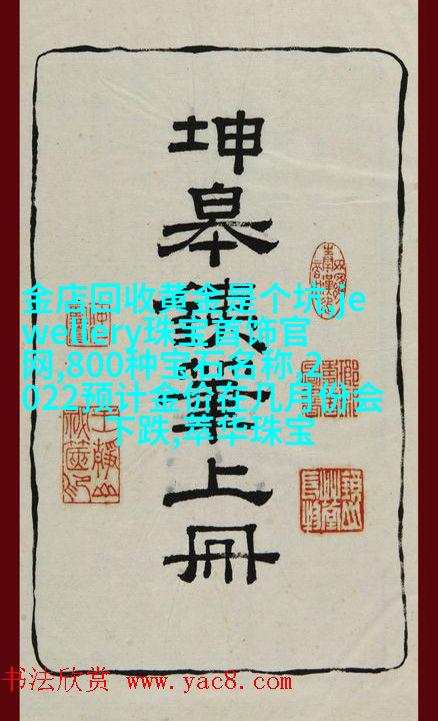 坤皋鐵筆上冊
金店回收黄金是个坑,je
wellery珠宝首饰官
网,800种宝石名称,2
022预计金价在几月份会
下跌,萃华珠宝
书法欣赏 www.yac8.com